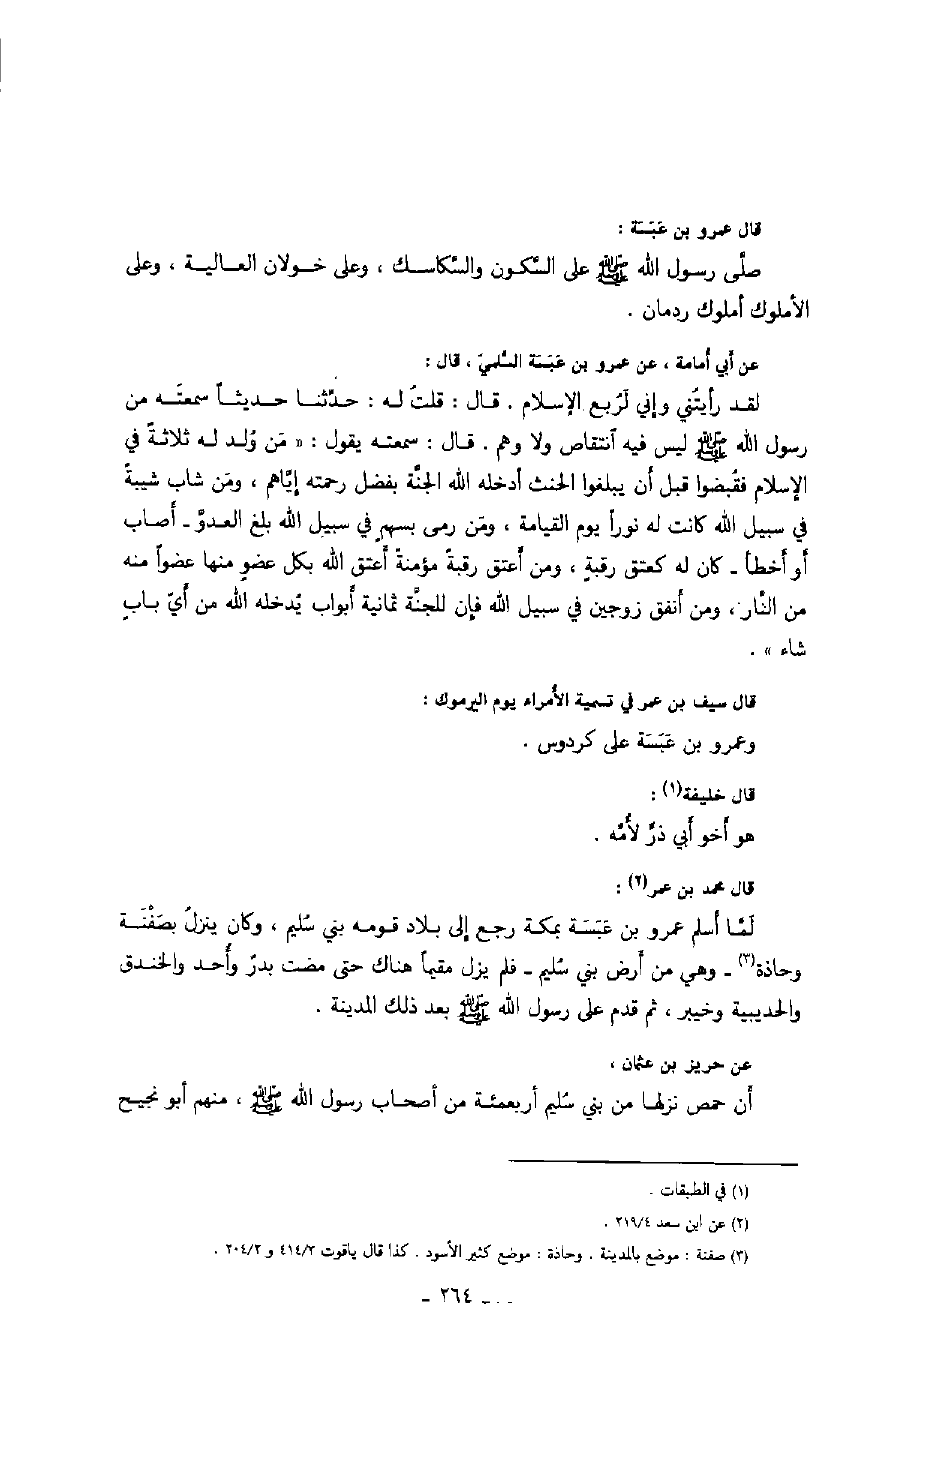 قال عمرو بن عَبَسَة :
صلَّى رسول الله ﷺ على السَّكون والسَّكاسك ، وعلى خولان العالية ، وعلى
الأملوك أملوك ردمان .
عن أبي أمامة ، عن عمرو بن عَبَسَة السُّلَميّ ، قال :
لقد رأيتُني وإني لَرُبع الإسلام . قال : قلتُ له : حدّثنا حديثاً سمعتَه من
رسول الله ﷺ ليس فيه آنتقاص ولا وهم . قال : سمعته يقول : « مَن وُلد له ثلاثةٌ في
الإسلام فقُبضوا قبل أن يبلغوا الحنث أدخله الله الجنَّة بفضل رحمته إيَّاهم ، ومَن شاب شيبةً
في سبيل الله كانت له نوراً يوم القيامة ، ومَن رمى بسهمٍ في سبيل الله بلغ العدوَّ ـ أصاب
أو أخطأ ـ كان له كعتق رقبةٍ ، ومن أعتق رقبةً مؤمنةً أعتق الله بكل عضوٍ منها عضواً منه
من النَّار ، ومن أنفق زوجين في سبيل الله فإن للجنَّة ثمانية أبواب يُدخله الله من أيّ بابٍ
شاء » .
قال سيف بن عمر في تسمية الأُمراء يوم اليرموك :
وعمرو بن عَبَسَة على كردوس .
قال خليفة(١) :
هو أخو أبي ذرٍّ لأُمِّه .
قال محمد بن عمر(٢) :
لَمَّا أسلم عمرو بن عَبَسَة بمكة رجع إلى بلاد قومه بني سُليم ، وكان ينزلُ بصَفْنَة
وحاذة(٣) ـ وهي من أرض بني سُليم ـ فلم يزل مقيماً هناك حتى مضت بدرٌ وأُحد والخندق
والحديبية وخيبر ، ثم قدم على رسول الله ﷺ بعد ذلك المدينة .
عن حريز بن عثمان ،
أن حمص نزلها من بني سُليم أربعمئة من أصحاب رسول الله ﷺ ، منهم أبو نجيح
(١) في الطبقات .
(٢) عن ابن سعد ٢١٩/٤ .
(٣) صفنة : موضع بالمدينة . وحاذة : موضع كثير الأسود . كذا قال ياقوت ٤١٤/٣ و ٢٠٤/٢ .
ـ ٢٦٤ ـ